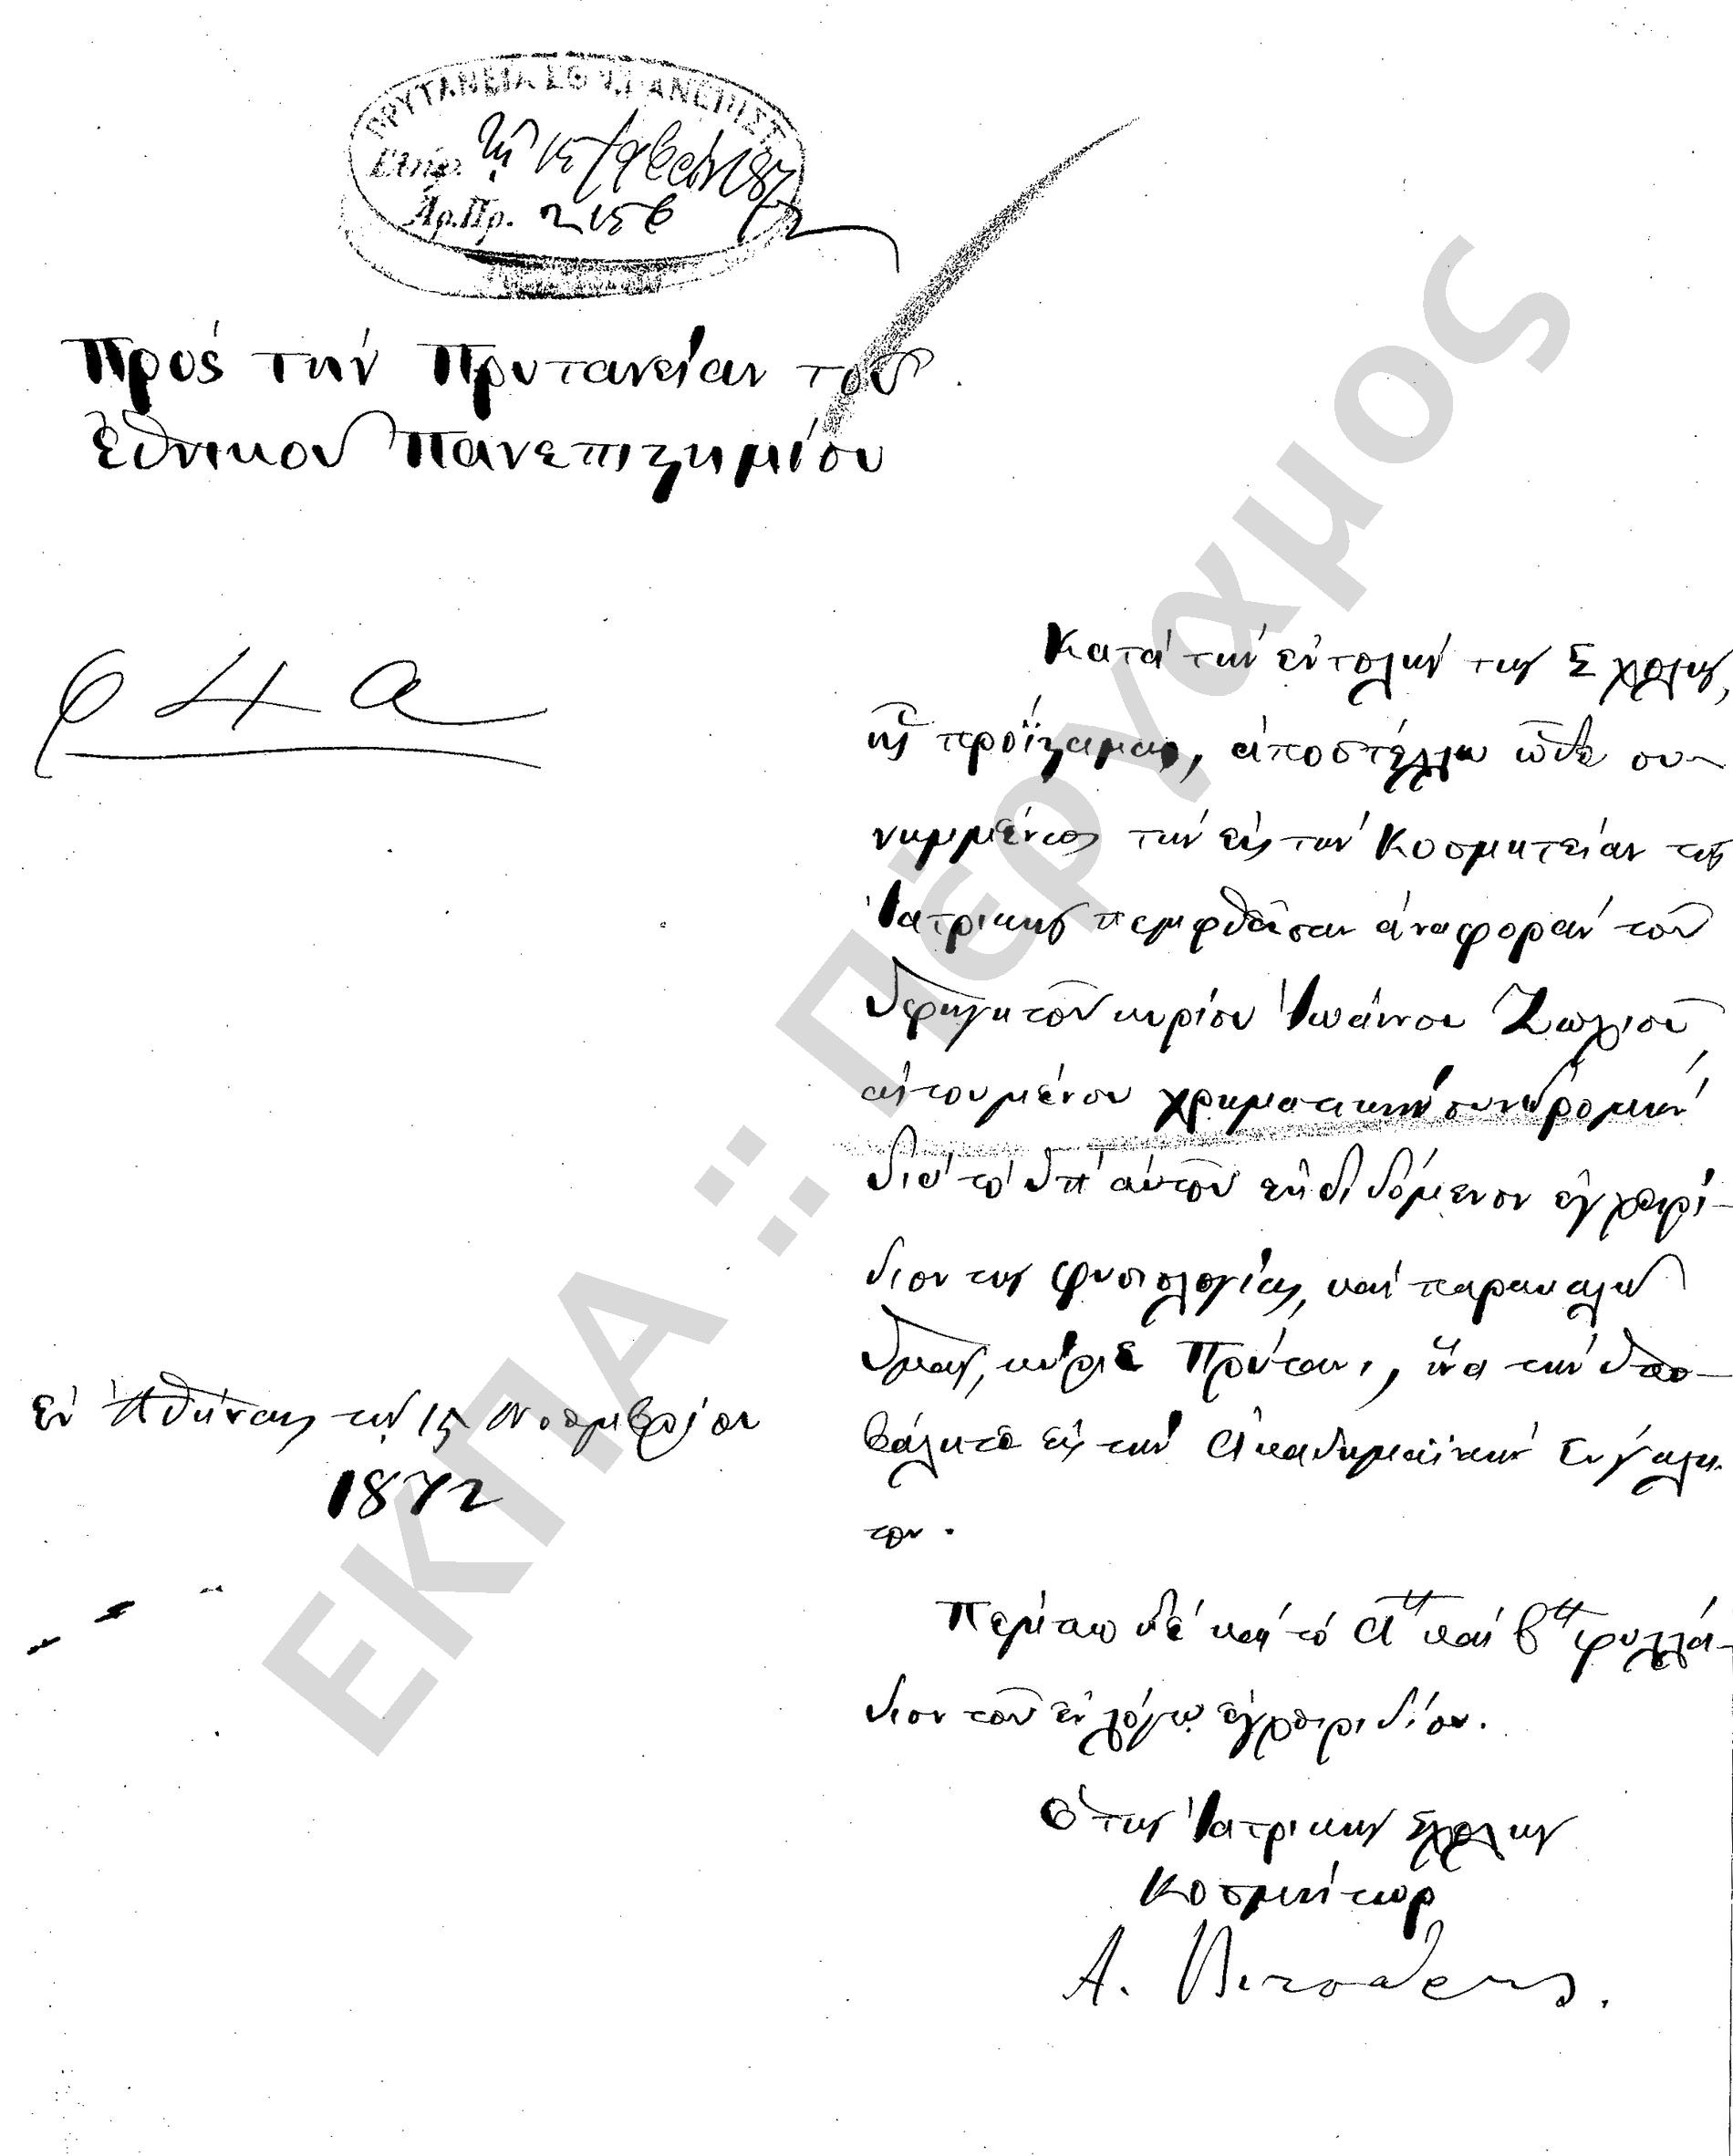 ΠΡΥΤΑΝΕΙΑ ΕΘΝ. ΠΑΝΕΠΙΣΤ
Ἐλήφ. τῇ 15
Ἀρ.Πρ. 2156
Πρὸς τὴν Πρυτανείαν τοῦ
Ἐθνικοῦ Πανεπιστημίου
φ 4 α
Κατὰ τὴν ἐντολὴν τῆς Σχολῆς,
ἧς προΐσταμαι, ἀποστέλλω ὧδε συ-
νημμένως τὴν εἰς τὴν Κοσμητείαν τῆς
Ἰατρικῆς πεμφθεῖσαν ἀναφορὰν τοῦ
ὑφηγητοῦ κυρίου Ἰωάννου Ζωχιοῦ,
αἰτουμένου χρηματικὴν συνδρομὴν
διὰ τὸ ὑπ' αὐτοῦ ἐκδιδόμενον ἐγχειρί-
διον τῆς φυσιολογίας, καὶ παρακαλῶ
ὑμᾶς, κύριε Πρύτανι, ἵνα τὴν ὑπο-
βάλητε εἰς τὴν Ἀκαδημαϊκὴν Σύγκλη-
τον.
Πέμπω δὲ καὶ τὸ Αον καὶ Βον φυλλά-
διον τοῦ ἐν λόγῳ ἐγχειριδίου.
Ἐν Ἀθήναις τῇ 15 Νοεμβρίου
1872
Ὁ τῆς Ἰατρικῆς Σχολῆς
Κοσμήτωρ
Α.
ΕΚΠΑ :: Πέργαμος